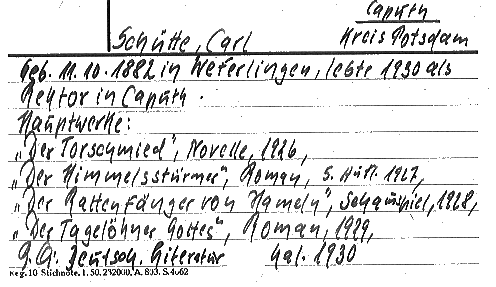 Caputh
Schütte, Carl Kreis Potsdam
Geb. 11.10.1882 in Weferlingen, lebte 1930 als
Rektor in Caputh.
Hauptwerke:
„Der Torschmied", Novelle, 1926,
„Der Himmelsstürmer", Roman, 5. Aufl. 1927,
„Der Rattenfänger von Hameln", Schauspiel, 1928,
„Der Tagelöhner Gottes", Roman, 1929,
Deutsch. Literatur Kal. 1930
Reg. 10 Stichnote. 1. 50. 232000. A. 803. S. 4662